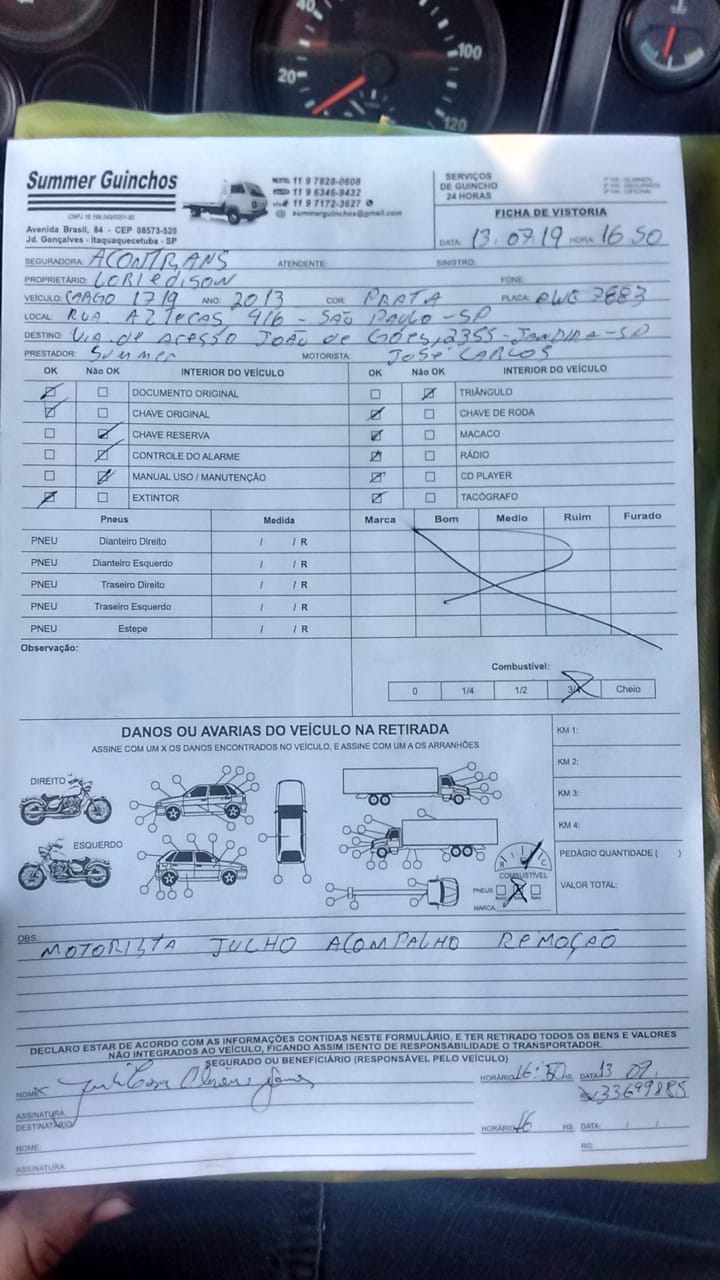 40
20
100
120
Summer Guinchos
11 9 7828-0608
11 9 6346-9432
11 9 7172-3627
summerguinchos@gmail.com
Avenida Brasil, 84 - CEP 08573-520
Jd. Gonçalves - Itaquaquecetuba - SP
SERVIÇOS
DE GUINCHO
24 HORAS
FICHA DE VISTORIA
DATA: 13.07.19 HORA: 16 50
SEGURADORA: ACONTRANS ATENDENTE: SINISTRO:
PROPRIETÁRIO: LORIEDISON FONE:
VEÍCULO: CARGO 1719 ANO: 2013 COR: PRATA PLACA:
LOCAL: RUA AZTECAS 416 - SAO PAULO - SP
DESTINO: VIA de ACESSO JOÃO de GÓES, 2355 - JANDIRA - SP
PRESTADOR: Summer MOTORISTA: JOSÉ CARLOS
OK Não OK INTERIOR DO VEÍCULO OK Não OK INTERIOR DO VEÍCULO
DOCUMENTO ORIGINAL TRIÂNGULO
CHAVE ORIGINAL CHAVE DE RODA
CHAVE RESERVA MACACO
CONTROLE DO ALARME RÁDIO
MANUAL USO / MANUTENÇÃO CD PLAYER
EXTINTOR TACÓGRAFO
Pneus Medida Marca Bom Medio Ruim Furado
PNEU Dianteiro Direito / / R
PNEU Dianteiro Esquerdo / / R
PNEU Traseiro Direito / / R
PNEU Traseiro Esquerdo / / R
PNEU Estepe / / R
Observação:
Combustível:
0 1/4 1/2 3/4 Cheio
DANOS OU AVARIAS DO VEÍCULO NA RETIRADA
ASSINE COM UM X OS DANOS ENCONTRADOS NO VEÍCULO, E ASSINE COM UM A OS ARRANHÕES
KM 1:
KM 2:
KM 3:
KM 4:
PEDÁGIO QUANTIDADE ( )
VALOR TOTAL:
DIREITO
ESQUERDO
R C
COMBUSTÍVEL
PNEUS
MARCA
OBS.
MOTORISTA JULHO ACOMPALHO REMOÇAO
DECLARO ESTAR DE ACORDO COM AS INFORMAÇÕES CONTIDAS NESTE FORMULÁRIO, E TER RETIRADO TODOS OS BENS E VALORES
NÃO INTEGRADOS AO VEÍCULO, FICANDO ASSIM ISENTO DE RESPONSABILIDADE O TRANSPORTADOR.
SEGURADO OU BENEFICIÁRIO (RESPONSÁVEL PELO VEÍCULO)
NOME: HORÁRIO 16:50 HS. DATA 13 07.
ASSINATURA: 33699885
DESTINATÁRIO HORÁRIO 16 HS. DATA: / /
NOME: RG:
ASSINATURA: